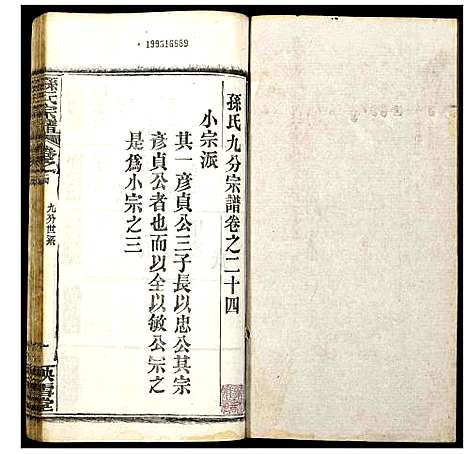 199516889
孫氏九分宗譜卷之二十四
小宗派
其一彥貞公三子長以忠公其宗
彥貞公者也而以全以敏公宗之
是爲小宗之三
孫氏宗譜
卷之
九分世派
映雪堂